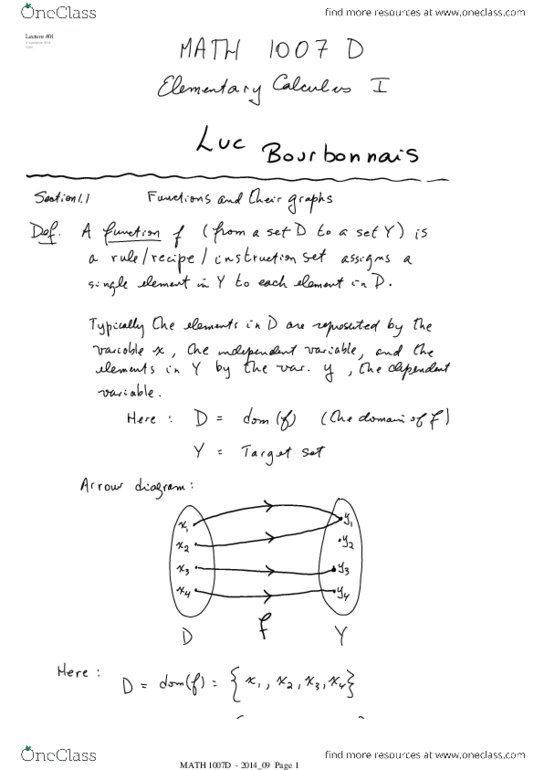 OneClass
find more resources at www.oneclass.com
Lecture #01
MATH 1007 D
Elementary Calculus I
Luc Bourbonnais
Section 1.1 Functions and their graphs
Def. A function f (from a set D to a set Y) is
a rule/recipe/instruction set assigns a
single element in Y to each element in D.
Typically the elements in D are represented by the
variable x, the independent variable, and the
elements in Y by the var. y, the dependent
variable.
Here : D = dom(f) (the domain of f)
Y = Target set
Arrow diagram:
x₁ y₁
x₂ y₂
x₃ y₃
x₄ y₄
D f Y
Here : D = dom(f) = {x₁, x₂, x₃, x₄}
OneClass
find more resources at www.oneclass.com
MATH 1007D - 2014_09 Page 1